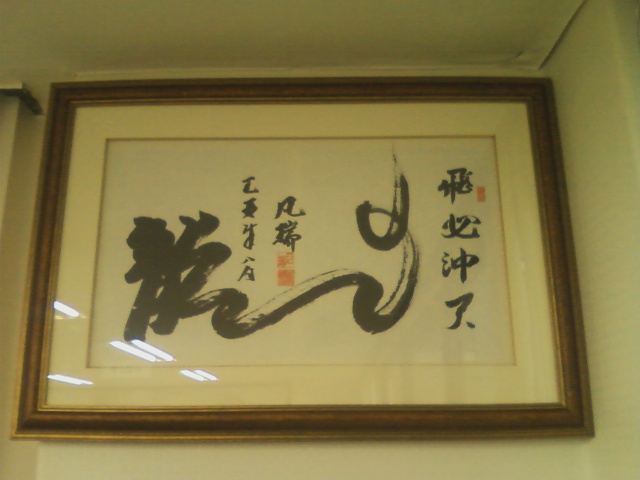 飛必沖天
龍
凡瑞
乙亥年八月